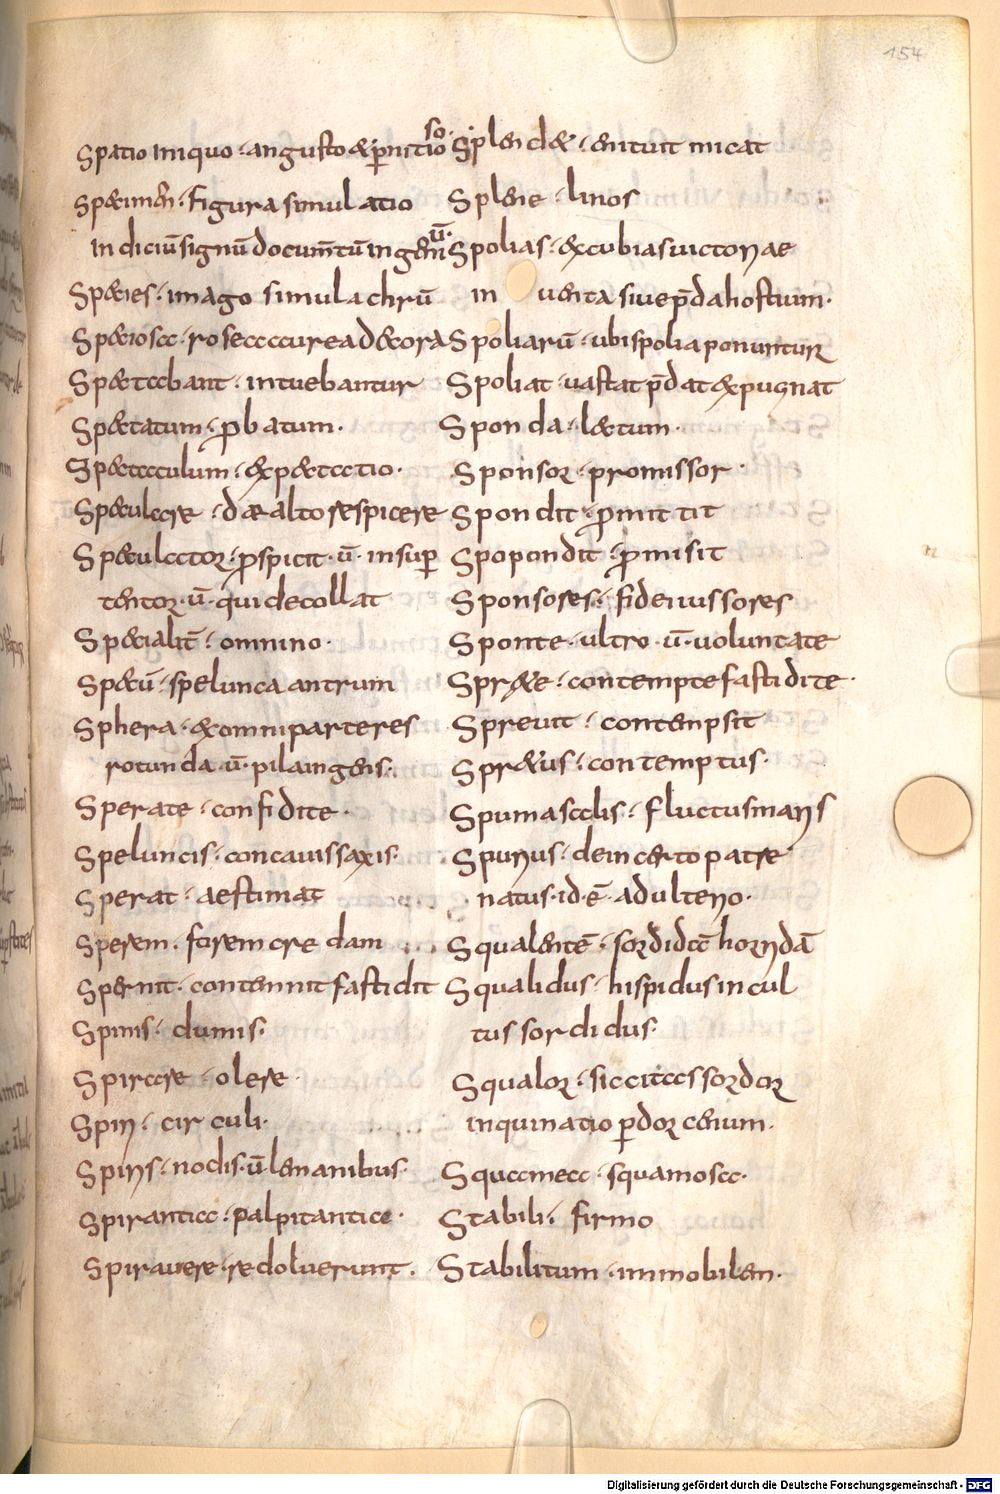 154
Spatio iniquo · angusto & p̄nitio
so·
Specimen̄ · figura simulatio
indiciū signū documt̄ū ingeni
ū·
Species · imago simulachrū
Speciosa · rosea aurea decora
Spectabant · intuebantur
Spectatum · ꝓbatum ·
Spectaculum · expectatio ·
Speculare · de alto respicere
Speculator · ꝓspicit · ū · insuꝑ
tentor · ū · qui decollat
Specialit̄ · omnino ·
Specū · spelunca antrum
Sphera · ex omni parte res
rotunda ū · pila ingens ·
Sperate · confidite ·
Speluncis · concavis saxis ·
Sperat · aestimat
Sperem · forem credam
Spernit · contemnit fastidit
Spinis · dumis ·
Spirare · olere ·
Spiri · circuli ·
Spiris · nodis · ū lenanibus ·
Spirantia · palpitantia ·
Spiravere · redoluerunt ·
Splendet · enituit micat
Splene · linos
Spolias · excubias victoriae
in uenta siue p̄da hostium ·
Spoliarū · ubi spolia ponuntur
Spoliat · uastat p̄dat expugnat
Sponda · lectum ·
Sponsor · promissor ·
Spondit · ꝓmittit
Spopondit · ꝓmisit
Sponsores · fideiussores
Sponte · ultro · ū · voluntate
Sprete · contempte fastidite ·
Sprevit · contempsit
Spretus · contemptus ·
Spuma salis · fluctus maris
Spurius · de incerto patre
natus · id · ē · adulterio ·
Squalentē · sordidā horridā
Squalidus · hispidus incul
tus sordidus ·
Squalor · siccitas sordor
inquinatio ꝑdor cenium ·
Squamea · squamosa ·
Stabili · firmo
Stabilitum · immobilem ·
Digitalisierung gefördert durch die Deutsche Forschungsgemeinschaft - DFG